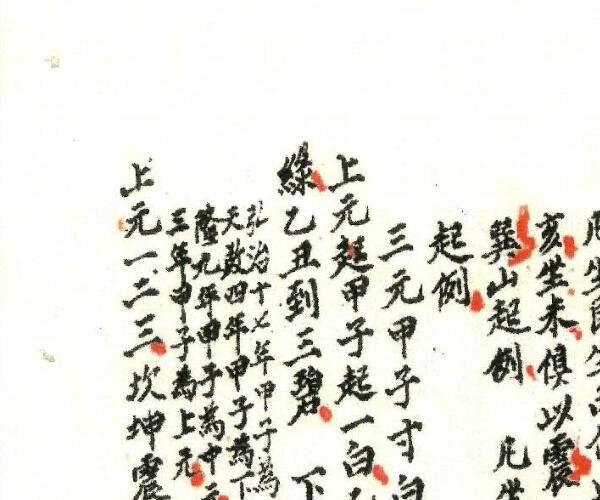 亥坐未俱以震
巽山起例　凡坐
起例
三元甲子寸白
上元起甲子起一白
綠乙丑到三碧　下
弘治十七年甲子為
天啟四年甲子為下
隆九年甲子為中元
三年甲子為上元
上元一二三坎坤震